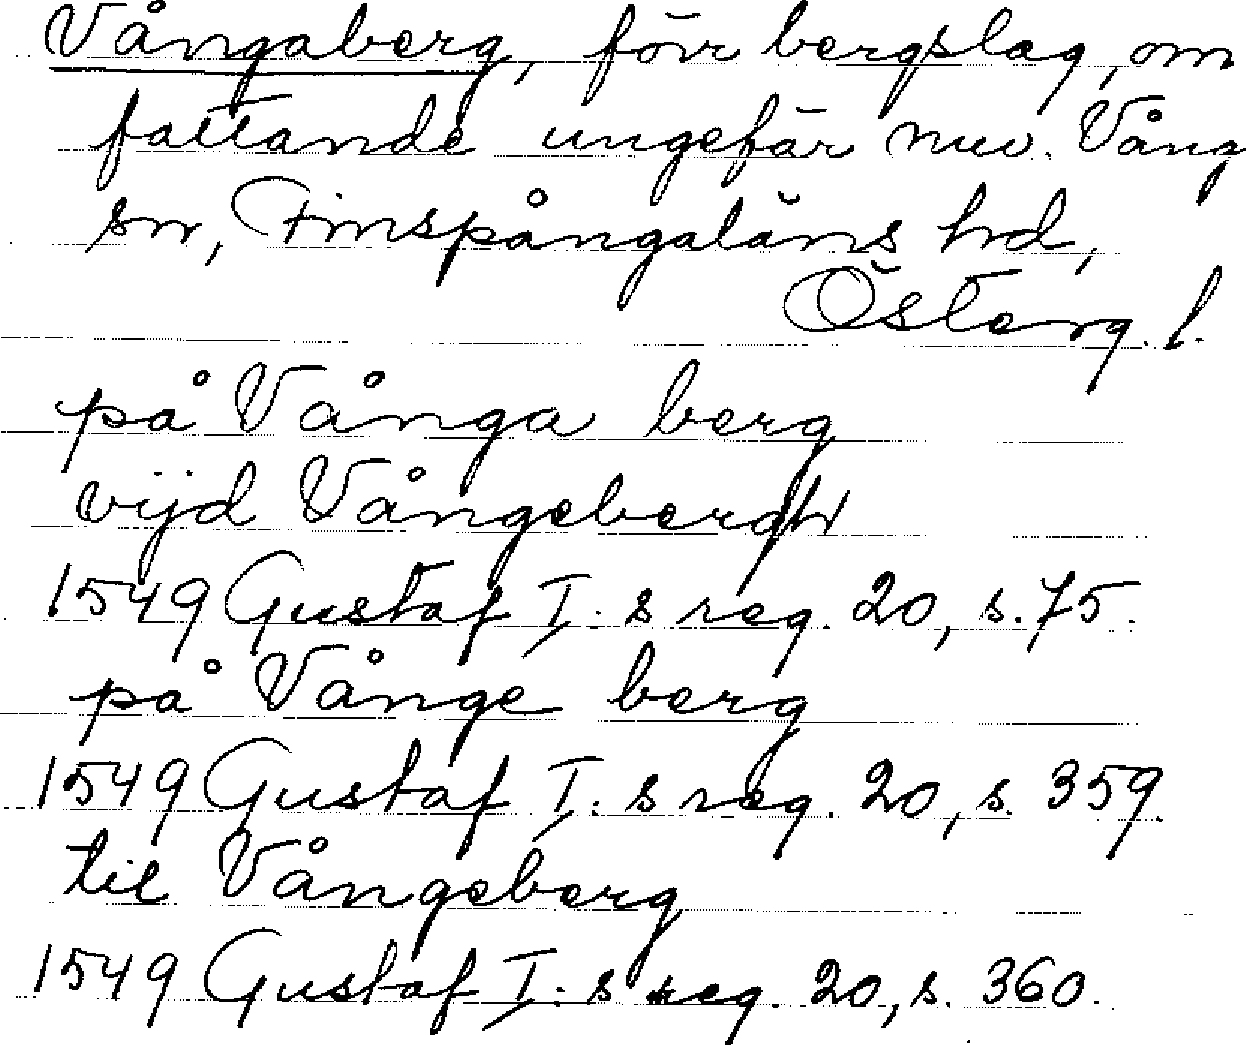 Vångaberg, förr bergslag, om
fattande ungefär nuv. Vång
sn, Finspångaläns hd,
Österg. l.
på Vånga berg
vijd Vångebergh
1549 Gustaf I:s reg. 20, s. 75.
på Vånge berg
1549 Gustaf I:s reg. 20, s. 359.
til Vångeberg
1549 Gustaf I:s reg. 20, s. 360.